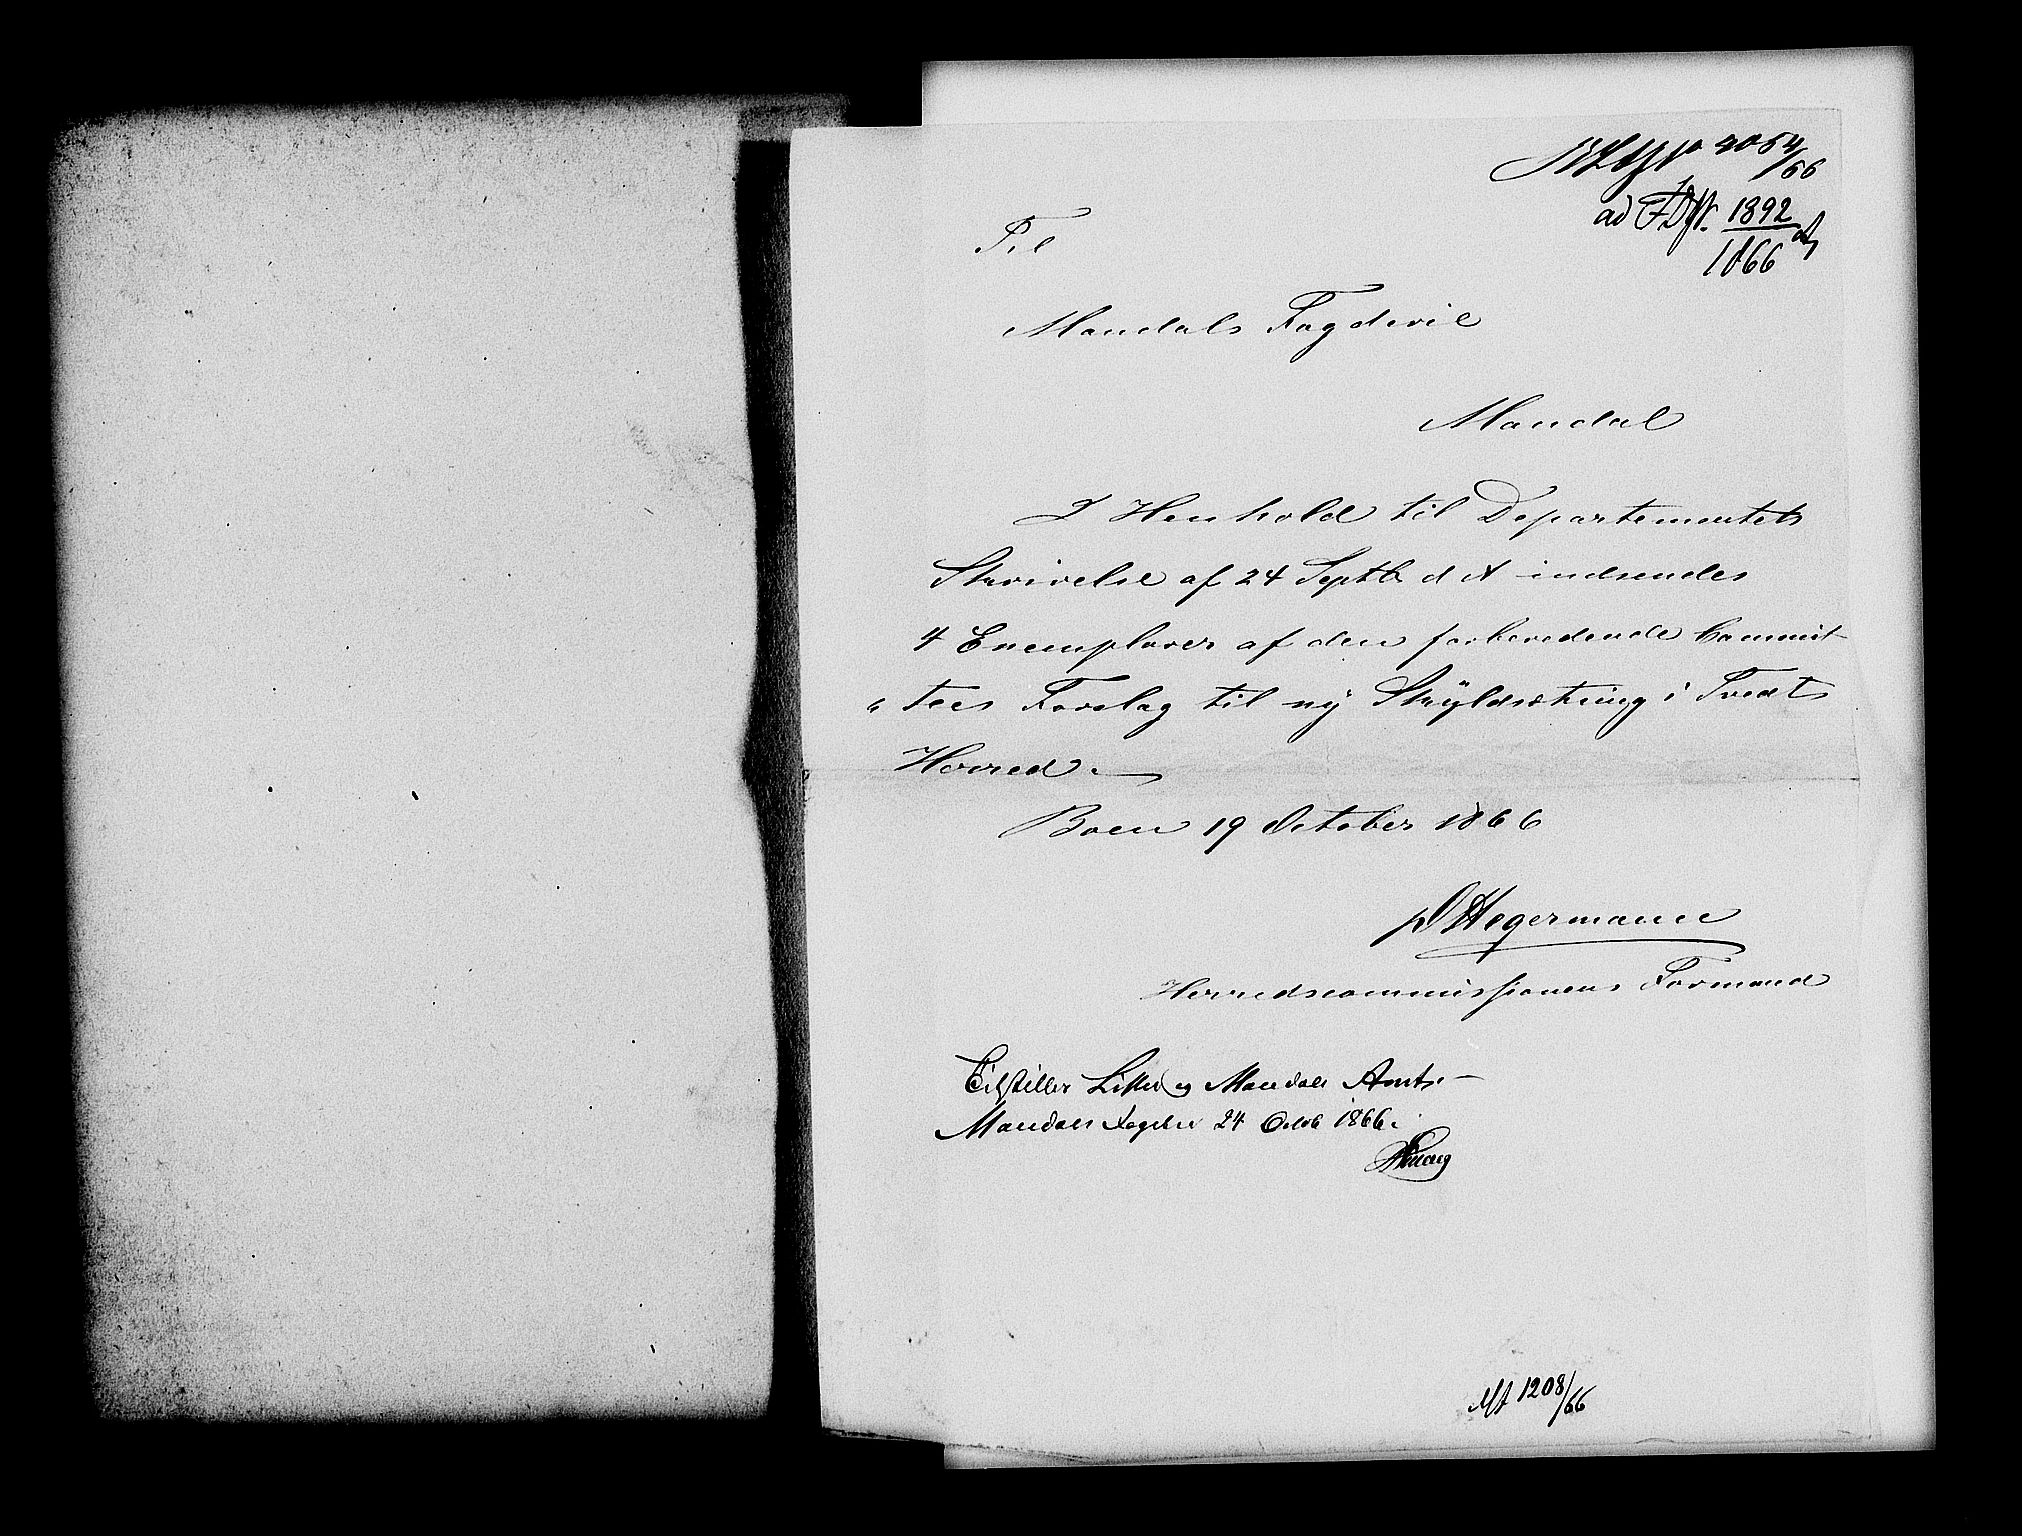 4054/66
ad FDpt. 1892
1866
Til
Mandals Fogderie
Mandal
I Henhold til Departementets
Skrivelse af 24 Septb d A indsendes
4 Exemplarer af den forberedende Commit-
"tees Forslag til ny Skyldsætning i Tvedt
Herred.
Boen 19 October 1866
D Hegermann
Herredscommissionens Formand
Tilstilles Lister og Mandals Amt.
Mandals Fogderi 24 Octb 1866.
MA 1208/66